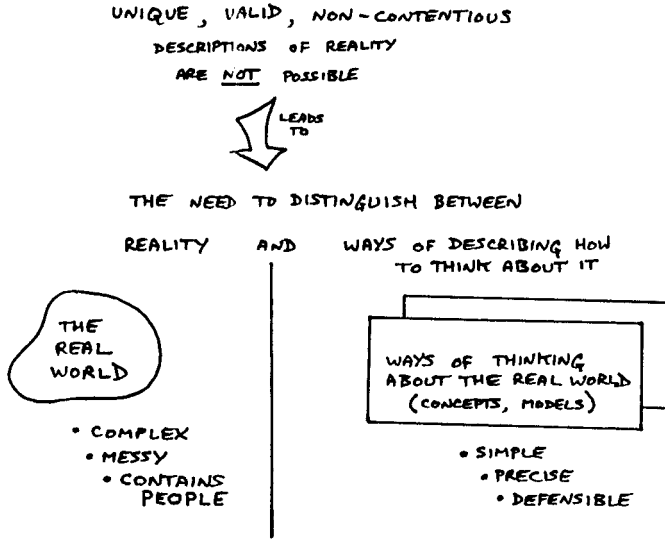 UNIQUE, VALID, NON-CONTENTIOUS
DESCRIPTIONS OF REALITY
ARE NOT POSSIBLE
LEADS
TO
THE NEED TO DISTINGUISH BETWEEN
REALITY AND WAYS OF DESCRIBING HOW
TO THINK ABOUT IT
THE
REAL
WORLD
• COMPLEX
• MESSY
• CONTAINS
PEOPLE
WAYS OF THINKING
ABOUT THE REAL WORLD
(CONCEPTS, MODELS)
• SIMPLE
• PRECISE
• DEFENSIBLE